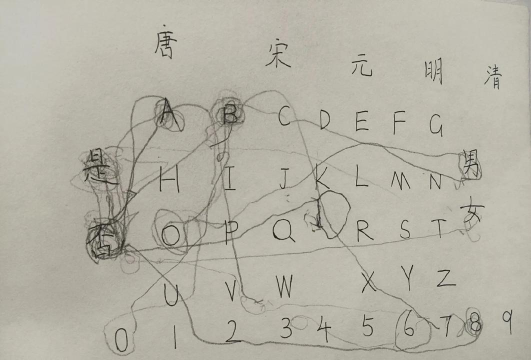 唐 宋 元 明 清
A B C D E F G
是 男
H I J K L M N
女
否 O P Q R S T
U V W X Y Z
0 1 2 3 4 5 6 7 8 9